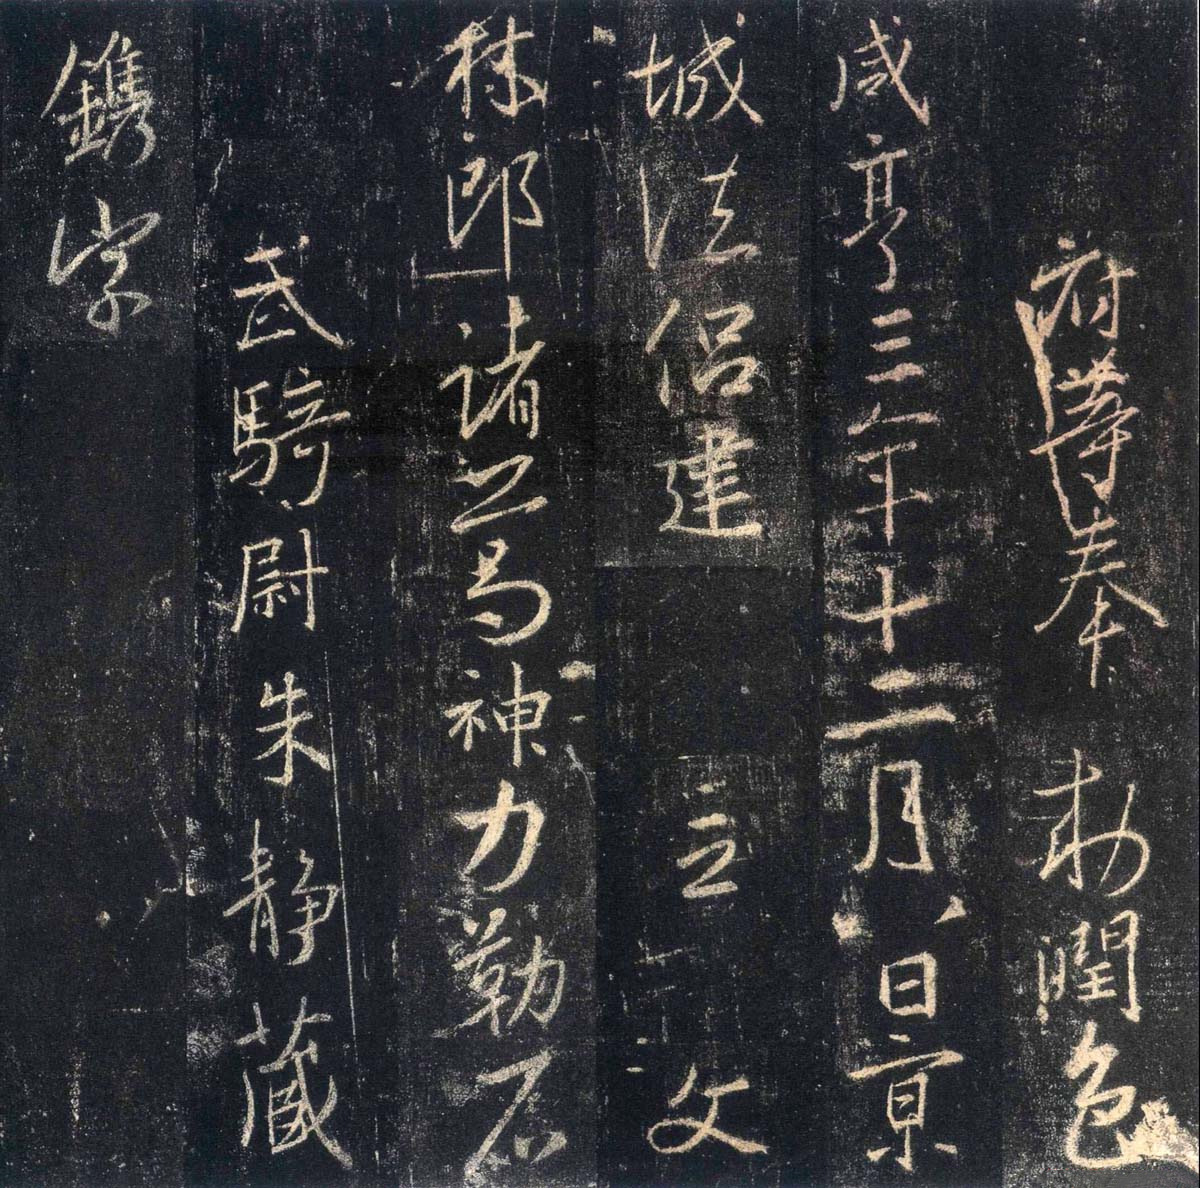 府等奉 勑潤色
咸亨三年十二月八日京
城法侶建 立 文
林郎諸葛神力勒石
武騎尉朱靜藏
鐫字